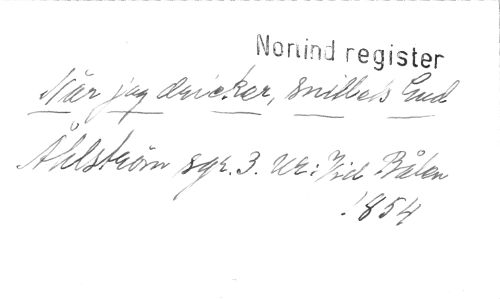 Nonind register
När jag dricker, snillets Gud
Åhlström sgr. 3. Ur: Vid Bålen
1854